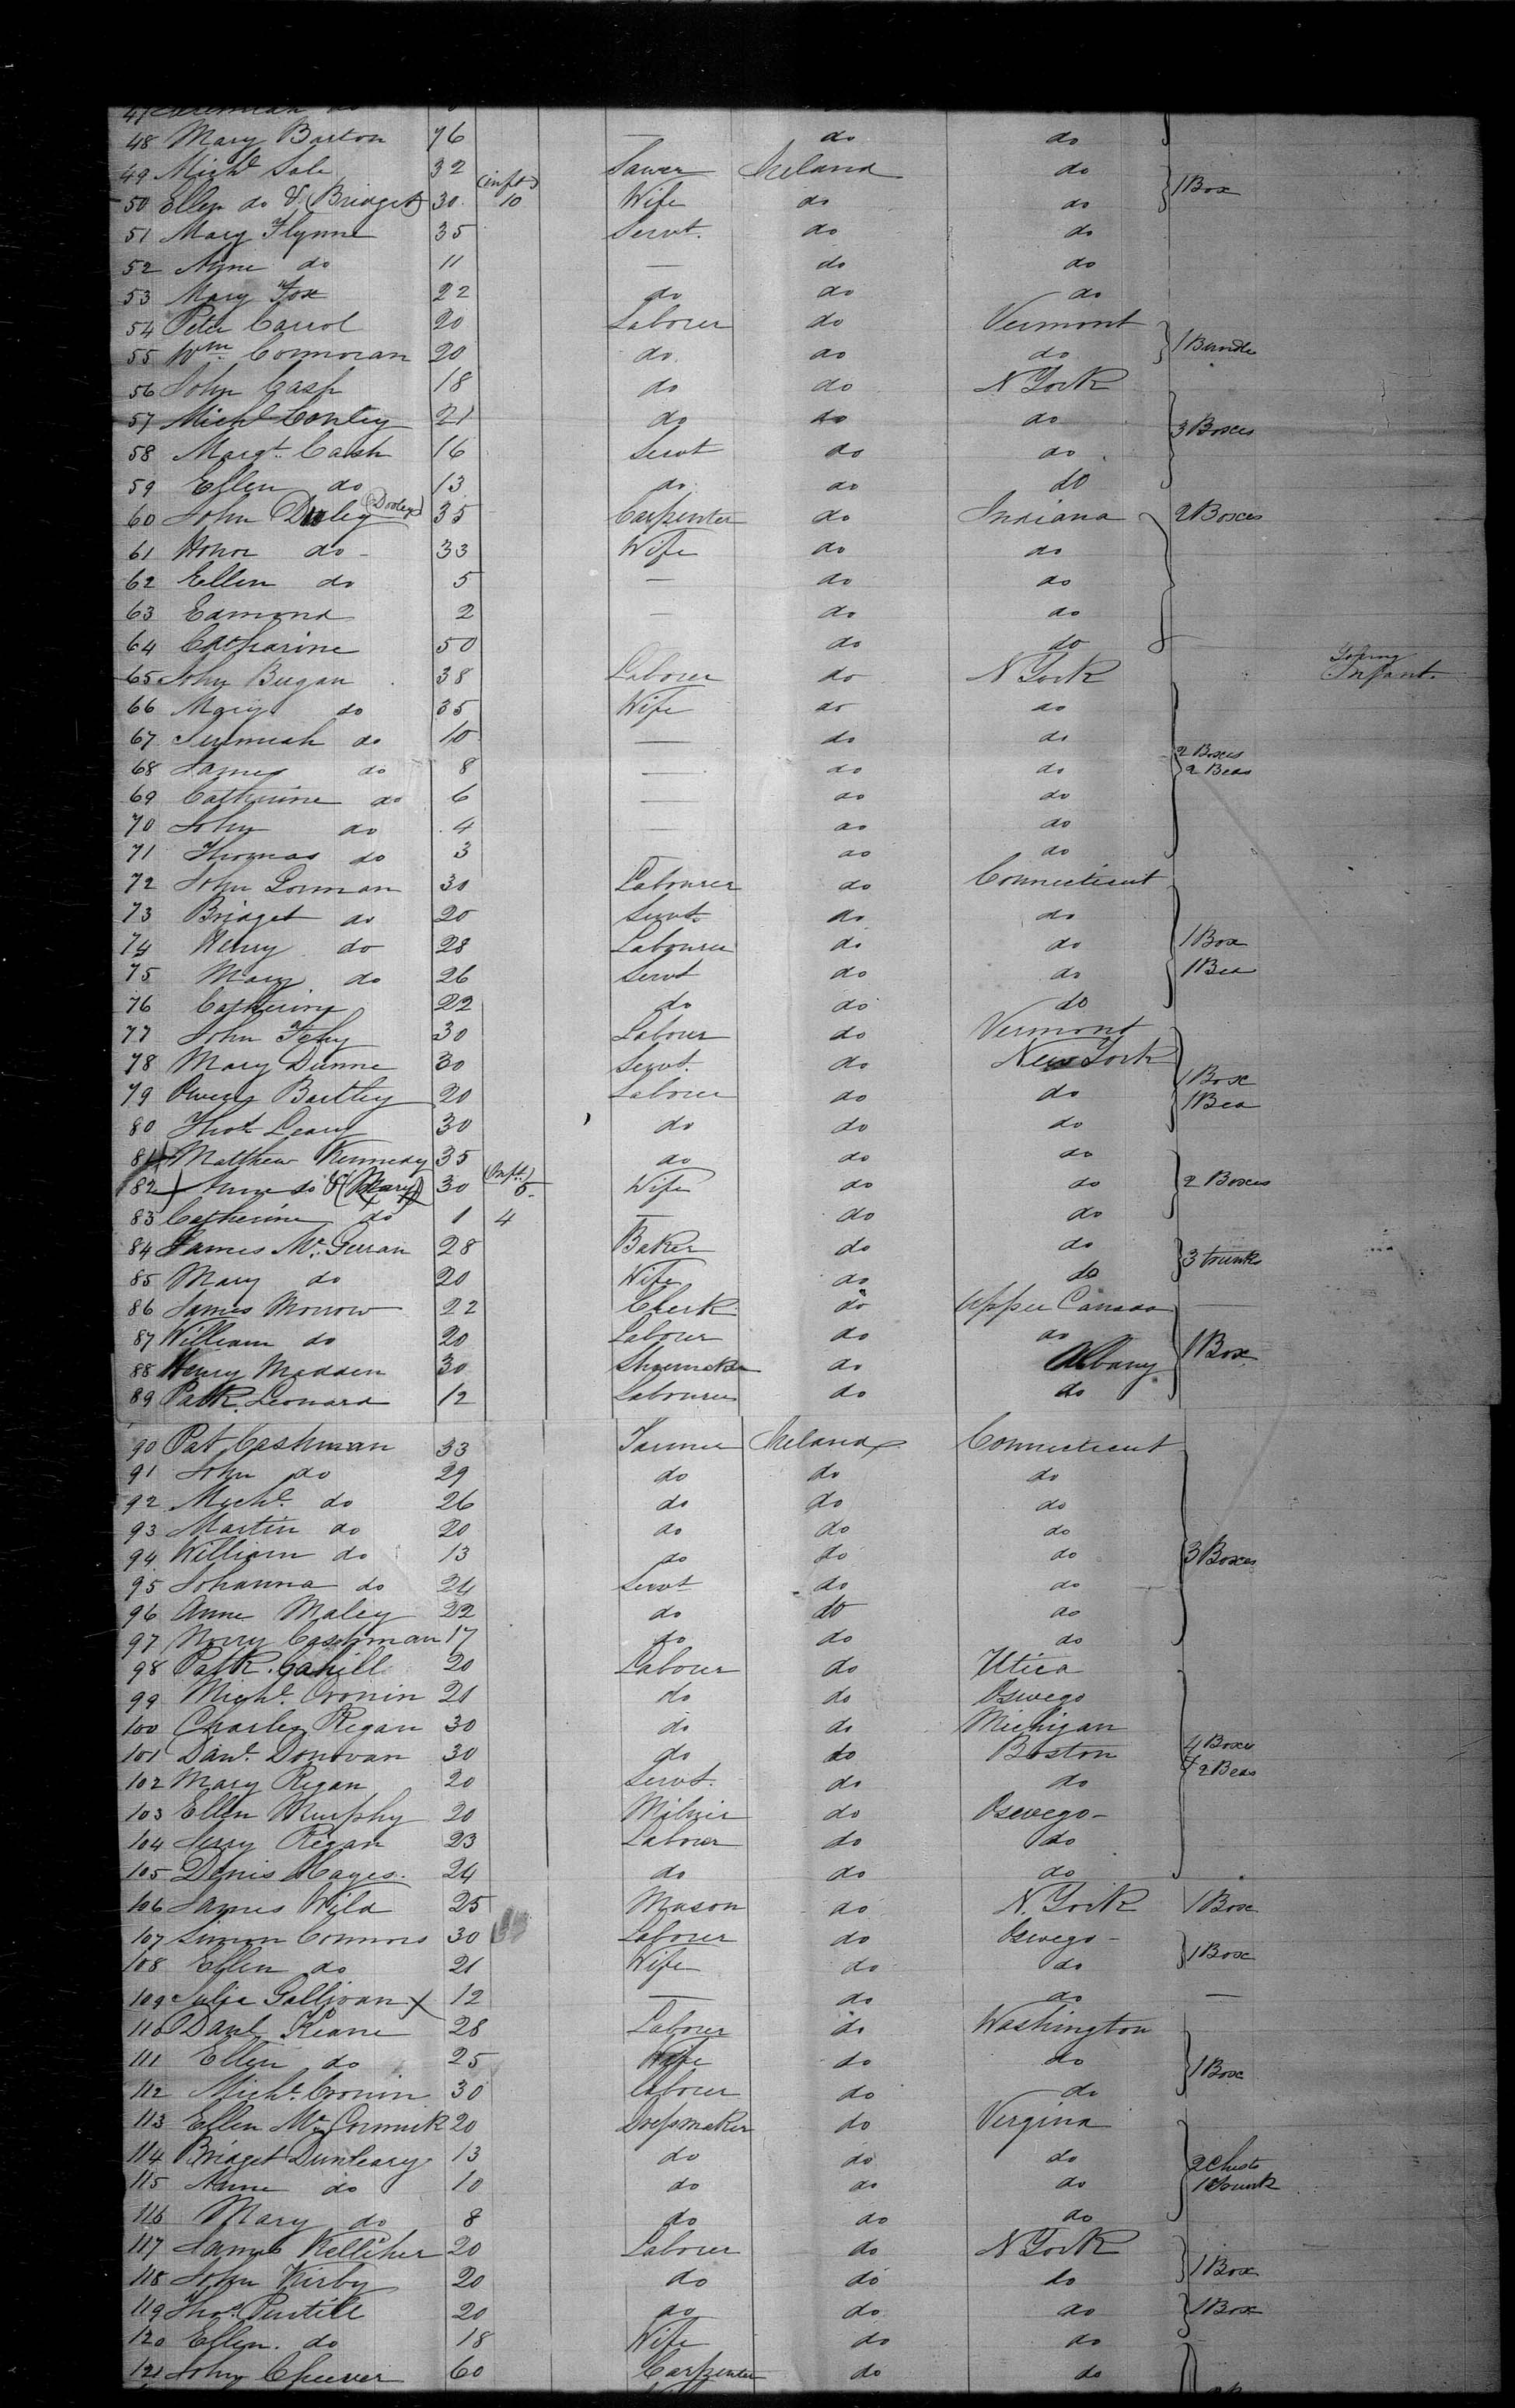 48 Mary Barton 76 — do do
49 Michl Sale 32 Sawer Ireland do
50 Ellen do & (Bridget) 30 (inft) 10 Wife do do } 1 Box
51 Mary Flynne 35 Servt. do do
52 Anne do 11 — do do
53 Mary Fox 22 do do do
54 Peter Carrol 20 Laborer do Vermont
55 Wm Connoran 20 do do do } 1 Bundle
56 John Cash 18 do do N York
57 Michl Conley 21 do do do } 3 Boxes
58 Margt. Cash 16 Servt do do
59 Ellen do 13 do do do
60 John Duley (Dooley) 35 Carpenter do Indiana } 2 Boxes
61 Honor do 33 Wife do do
62 Ellen do 5 — do do
63 Edmond 2 — do do
64 Catharine 50 do do
65 John Bugan 38 Laborer do N York Infant
66 Mary do 35 Wife do do
67 Jeremiah do 10 — do do
68 James do 8 — do do } 2 Boxes 2 Beds
69 Catherine do 6 — do do
70 John do 4 — do do
71 Thomas do 3 — do do
72 John Gorman 30 Labourer do Connecticut
73 Bridget do 20 Servt. do do
74 Henry do 28 Labourer do do } 1 Box
75 Mary do 26 Servt do do 1 Bed
76 Catherine 22 do do do
77 John Fehy 30 Labour do Vermont
78 Mary Dunne 30 Servt. do New York } 1 Box
79 Owens Bartley 20 Laborer do do 1 Bed
80 Thos Leary 30 do do do
81 Mathew Kennedy 35 do do do
82 Anne do & (Mary) 30 (Inft) 5 Wife do do } 2 Boxes
83 Catherine do 1 4 — do do
84 James Mc. Gerran 28 Baker do do } 3 trunks
85 Mary do 20 Wife do do
86 James Morrow 22 Clerk do Upper Canada —
87 William do 20 Labour do do } 1 Box
88 Henry Madden 30 Shoemaker do Albany
89 Patk. Leonard 12 Labourer do do
90 Pat Cashman 33 Farmer Ireland Connecticut
91 John do 29 do do do
92 Michl. do 26 do do do
93 Martin do 20 do do do
94 William do 13 do do do } 3 Boxes
95 Johanna do 24 Servt do do
96 Anne Maley 22 do do do
97 Norry Cashman 17 do do do
98 Patk. Cahill 20 Labour do Utica
99 Michl. Cronin 21 do do Oswego
100 Charles Regan 30 do do Michigan
101 Danl. Donovan 30 do do Boston } 4 Boxes
102 Mary Regan 20 Servt. do do & 2 Beds
103 Ellen Murphy 20 do Oswego -
104 Jerry Regan 23 Labour do do
105 Denis Hayes. 24 do do do
106 James Wild 25 Mason do N. York 1 Box
107 Simon Connors 30 Laborer do Oswego -
108 Ellen do 21 Wife do do } 1 Box
109 Julia Sullivan x 12 — do do —
110 Danl Keane 28 Labour do Washington
111 Ellen do 25 Wife do do } 1 Box
112 Michl. Cronin 30 Laborer do do
113 Ellen Mc Cormick 20 Dressmaker do Vergina
114 Bridget Dunleary 13 do do do } 2 Chests
115 Anne do 10 do do do 1 Trunk
116 Mary do 8 do do do
117 James Kelliher 20 Laborer do N York
118 John Kirby 20 do do do } 1 Box
119 Thos. Purtill 20 do do do } 1 Box
120 Ellen. do 18 Wife do do
121 John Cheever 60 Carpenter do do